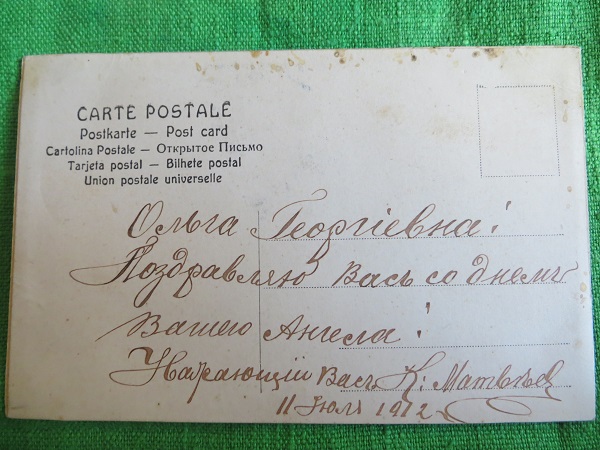 CARTE POSTALE
Postkarte — Post card
Cartolina Postale — Открытое Письмо
Tarjeta postal — Bilhete postal
Union postale universelle
Ольга Георгіевна!
Поздравляю Васъ со днемъ
Вашего Ангела!
Уважающій Васъ К: Матвѣевъ
11 Іюля 1912